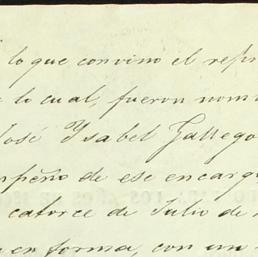 lo que convino el repr
lo cual, fueron nom
José Ysabel Gallego
mpeño de ese encarg
catorce de Julio de
en forma, con un